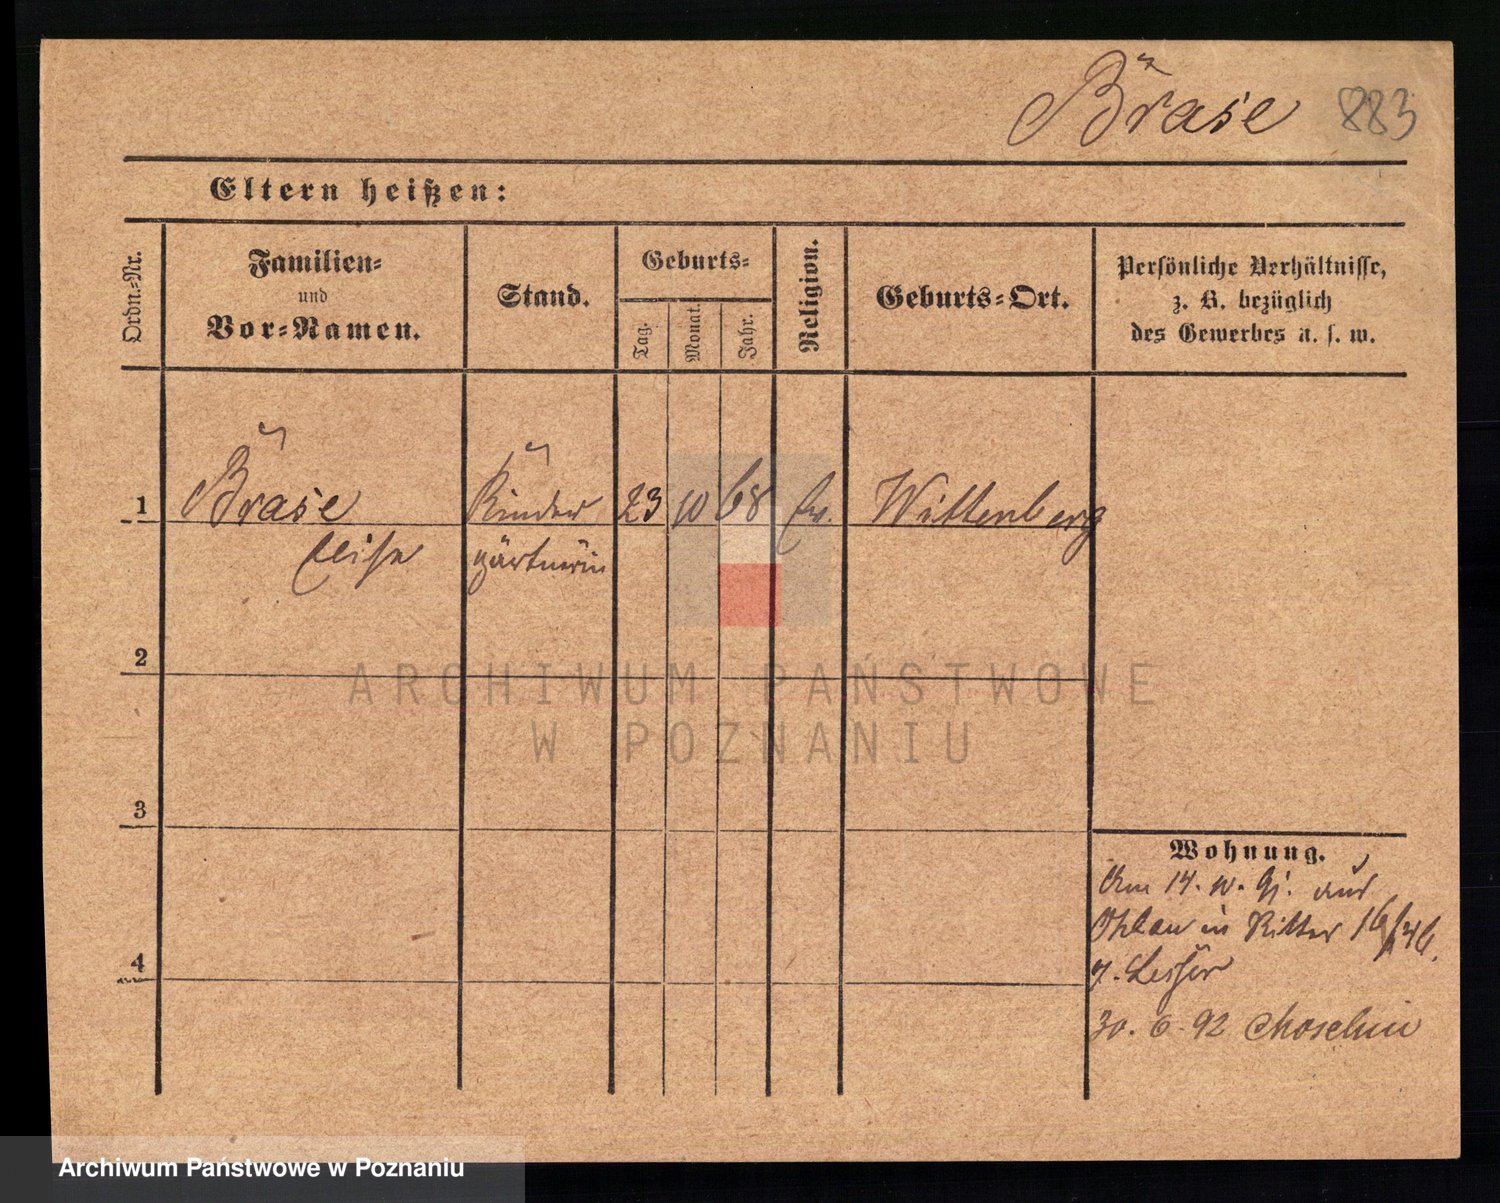 Brase 883
Eltern heißen:
Ordn.-Nr.
Familien-
und
Vor-Namen.
Stand.
Geburts-
Tag.
Monat.
Jahr.
Religion.
Geburts-Ort.
Persönliche Verhältnisse,
z. B. bezüglich
des Gewerbes u. s. w.
1 Brase Kinder 23 10 68 Ev. Wittenberg
Elise gärtnerin
2
3
4
Wohnung.
Am 14. 10. 91. aus
Ohlau in Ritter 16
30. 6. 92 Moschin
ARCHIWUM PAŃSTWOWE
W POZNANIU
Archiwum Państwowe w Poznaniu